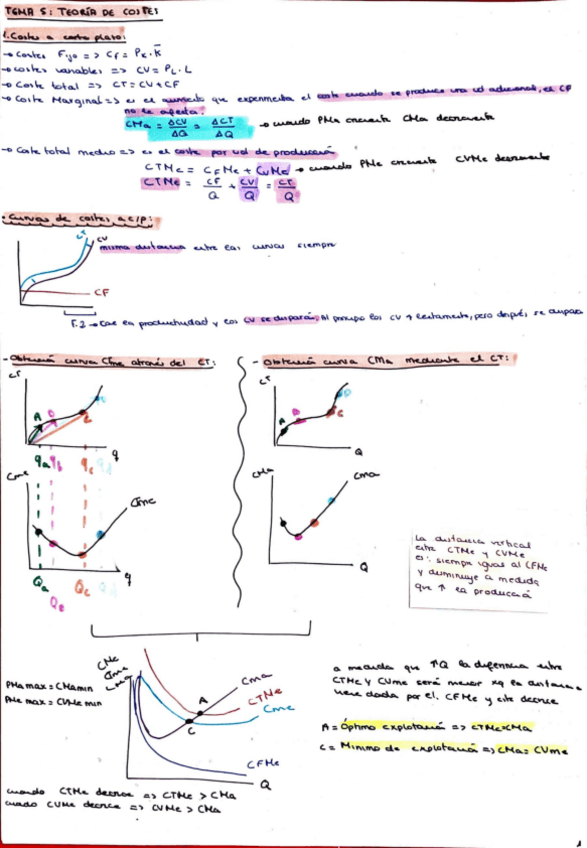 TEMA 5: TEORÍA DE COSTES
1. Costes a corto plazo:
→ Costes Fijo => CF = PK · K̄
→ costes variables => CV = PL · L
→ Coste total => CT = CV + CF
→ Coste Marginal => es el aumento que experimenta el coste cuando se produce una ud adicional, el CF
no le afecta.
CMa = ΔCV/ΔQ = ΔCT/ΔQ → cuando PMa creciente CMa decreciente
→ Coste total medio => es el coste por ud de producción
CTMe = CFMe + CVMe → cuando PMe creciente CVMe decreciente
CTMe = CF/Q + CV/Q = CT/Q
· Curvas de costes a c/p:
CT CV
misma distancia entre las curvas siempre
CF
F.2 → Cae en productividad y los CV se disparan. Al principio los CV ↑ lentamente, pero después se dispara
- Obtención curva CTme através del CT:
- Obtención curva CMa mediente el CT:
CT
A
qa qb qc qd q
Cme
CTme
Qa Qb Qc Qd q
CT
A B C D
Q
CMa
Cma
Q
La distancia vertical
entre CTMe y CVMe
es siempre igual al CFMe
y disminuye a medida
que ↑ la producción
PMa max = CMa min
PMe max = CVMe min
CMe
Cme
CMa
Cma
A
CTMe
Cme
C
CFMe
Q
a medida que ↑Q la diferencia entre
CTMe y CVme será menor xq la distancia
viene dada por el CFMe y este decrece
A = Óptimo explotación => CTMe=CMa
C = Mínimo de explotación => CMa = CVme
cuando CTMe decrece => CTMe > CMa
cuado CVMe decrece => CVMe > CMa
1